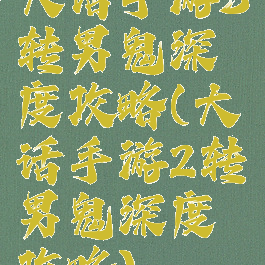 大话手游2
转男鬼深
度攻略(大
话手游2转
男鬼深度
攻略)